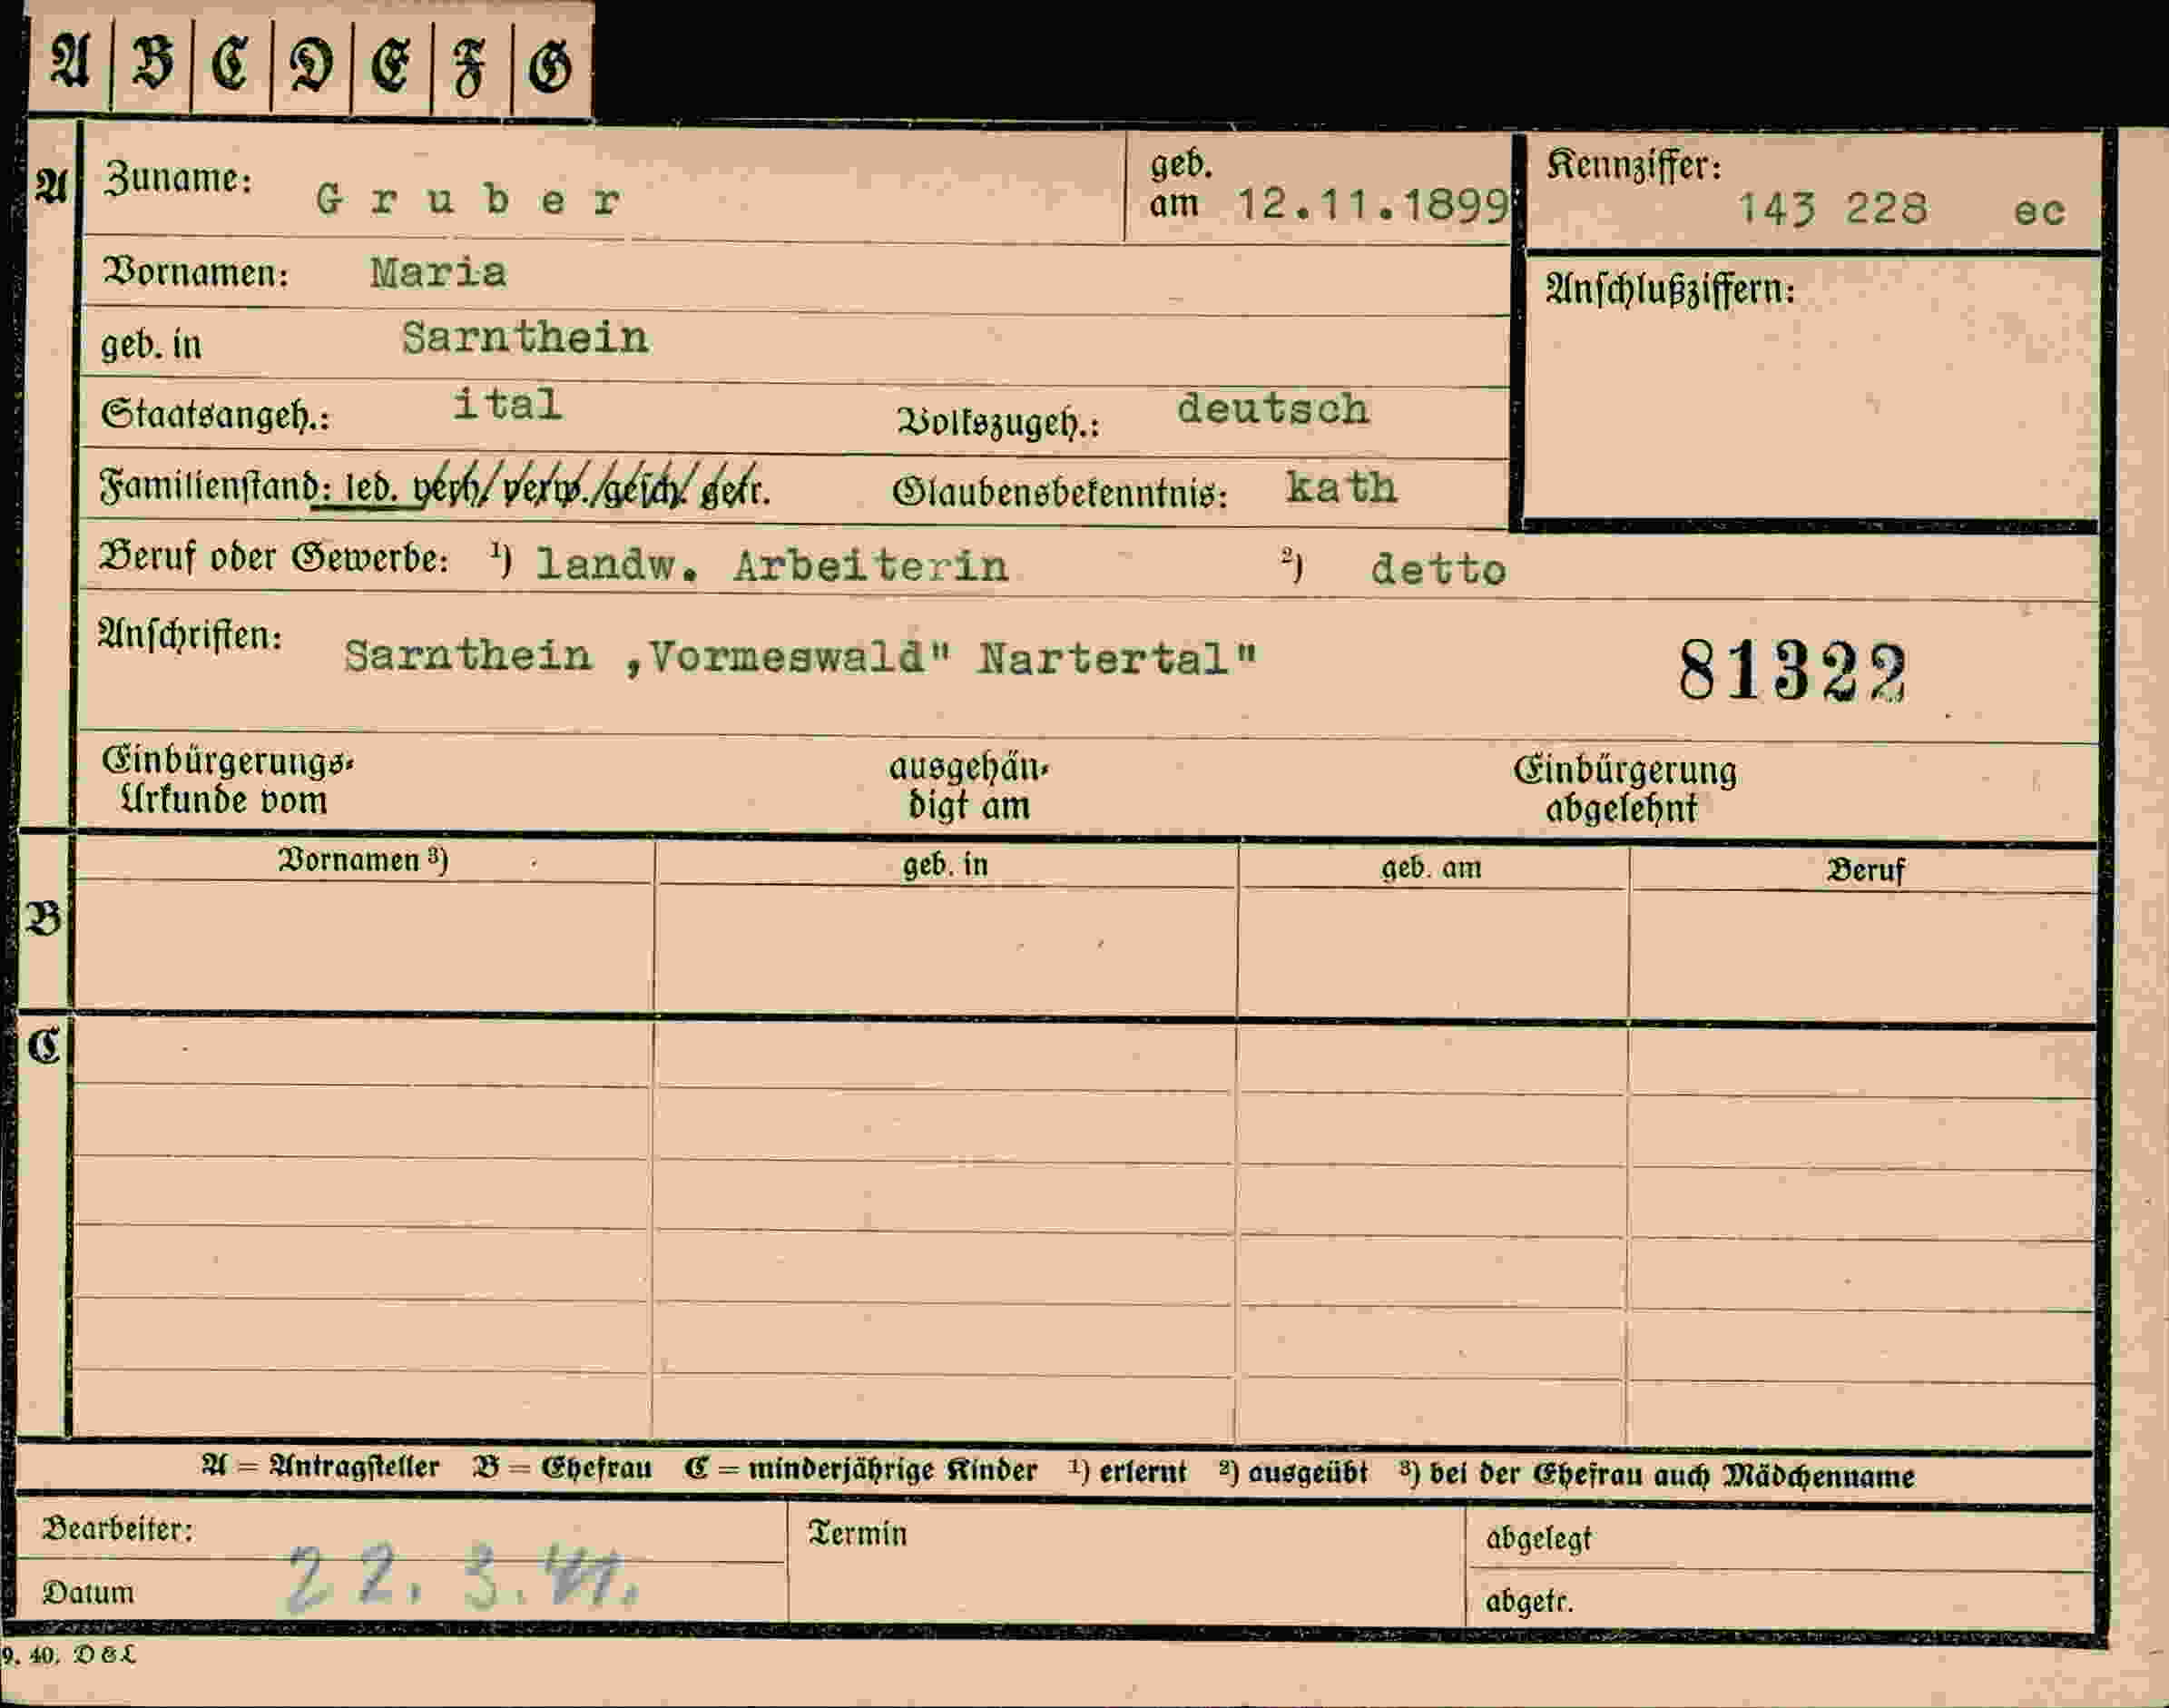 A B C D E F G
A Zuname: Gruber geb. am 12.11.1899 Kennziffer: 143 228 ec
Vornamen: Maria Anschlußziffern:
geb. in Sarnthein
Staatsangeh.: ital Volkszugeh.: deutsch
Familienstand: led. verh. verw. gesch. getr. Glaubensbekenntnis: kath
Beruf oder Gewerbe: ¹) landw. Arbeiterin ²) detto
Anschriften: Sarnthein „Vormeswald" Nartertal" 81322
Einbürgerungs-
Urkunde vom
ausgehän-
digt am
Einbürgerung
abgelehnt
Vornamen ³) geb. in geb. am Beruf
B
C
A = Antragsteller B = Ehefrau C = minderjährige Kinder ¹) erlernt ²) ausgeübt ³) bei der Ehefrau auch Mädchenname
Bearbeiter: Termin abgelegt
Datum 22.3.41. abgetr.
9. 40. D&L